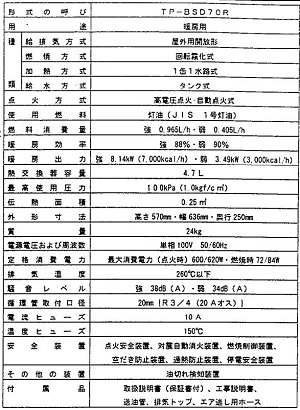 形式の呼び TP-BSD70R
用途 暖房用
種類 給排気方式 屋外用開放形
燃焼方式 回転霧化式
加熱方式 1缶1水路式
給水方式 タンク式
点火方式 高電圧点火・自動点火式
使用燃料 灯油(JIS 1号灯油)
燃料消費量 強 0.965L/h・弱 0.405L/h
暖房効率 強 88%・弱 90%
暖房出力 強 8.14kW(7,000kcal/h)・弱 3.49kW(3,000kcal/h)
熱交換器容量 4.7L
最高使用圧力 100kPa(1.0kgf/c㎡)
伝熱面積 0.25㎡
外形寸法 高さ570mm・幅636mm・奥行250mm
質量 24kg
電源電圧および周波数 単相100V 50/60Hz
定格消費電力 最大消費電力(点火時)600/620W・燃焼時72/84W
排気温度 260℃以下
騒音レベル 強 38dB(A)・弱 34dB(A)
循環管取付口径 20mm{R3/4(20Aオス)}
電流ヒューズ 10A
温度ヒューズ 150℃
安全装置 点火安全装置、対震自動消火装置、燃焼制御装置、
空だき防止装置、過熱防止装置、停電安全装置
その他の装置 油切れ検知装置
付属品 取扱説明書(保証書付)、工事説明書、
送油管、排気トップ、エア逃し用ホース